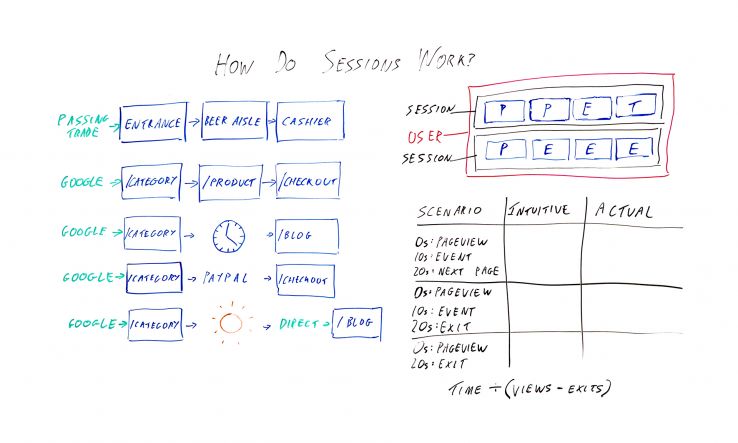 HOW DO SESSIONS WORK?
PASSING
TRADE
ENTRANCE
BEER AISLE
CASHIER
GOOGLE
/CATEGORY
/PRODUCT
/CHECKOUT
GOOGLE
/CATEGORY
/BLOG
GOOGLE
/CATEGORY
PAYPAL
/CHECKOUT
GOOGLE
/CATEGORY
DIRECT
/BLOG
SESSION
P P E T
USER
SESSION
P E E E
SCENARIO INTUITIVE ACTUAL
0s: PAGEVIEW
10s: EVENT
20s: NEXT PAGE
0s: PAGEVIEW
10s: EVENT
20s: EXIT
0s: PAGEVIEW
20s: EXIT
TIME ÷ (VIEWS - EXITS)